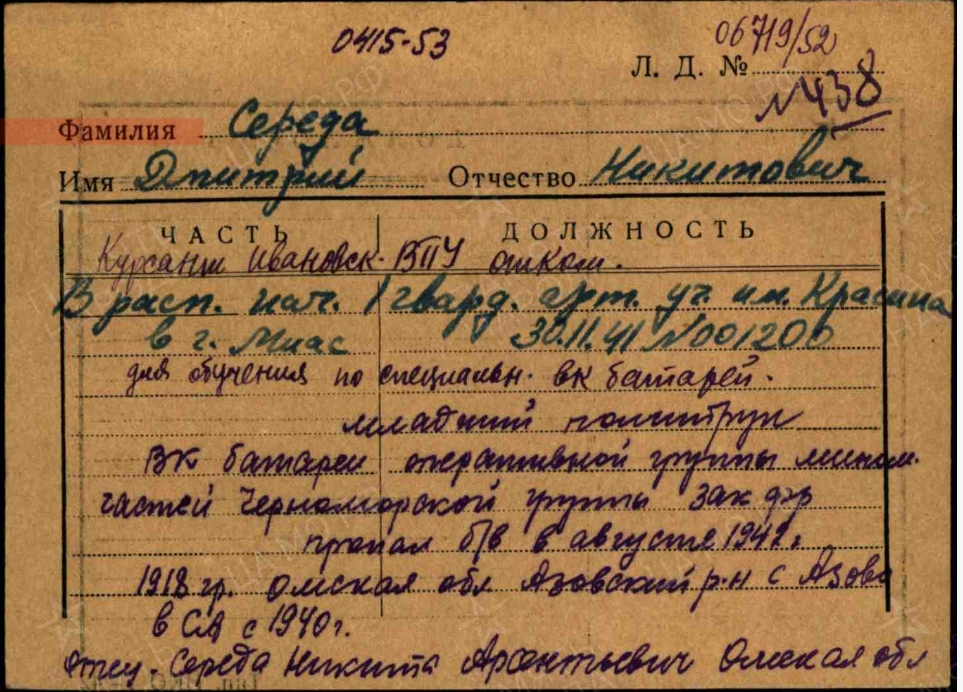 0415-53
06719/52
Л. Д. №
№438
Фамилия Середа
Имя Дмитрий Отчество Никитович
ЧАСТЬ ДОЛЖНОСТЬ
Курсант Ивановск. ВПУ
В расп. нач. 1 гвард. арт. уч. им. Красина
в г. Миас 30.11.41 №001200
для обучения по специальн. вк батарей.
младший политрук
ВК батареи оперативной группы мином.
частей Черноморской группы Зак фр
пропал б/в в августе 1942 г.
1918 гр. Омская обл Азовский р-н с Азово
в СА с 1940 г.
отец - Середа Никита Арсентьевич Омская обл